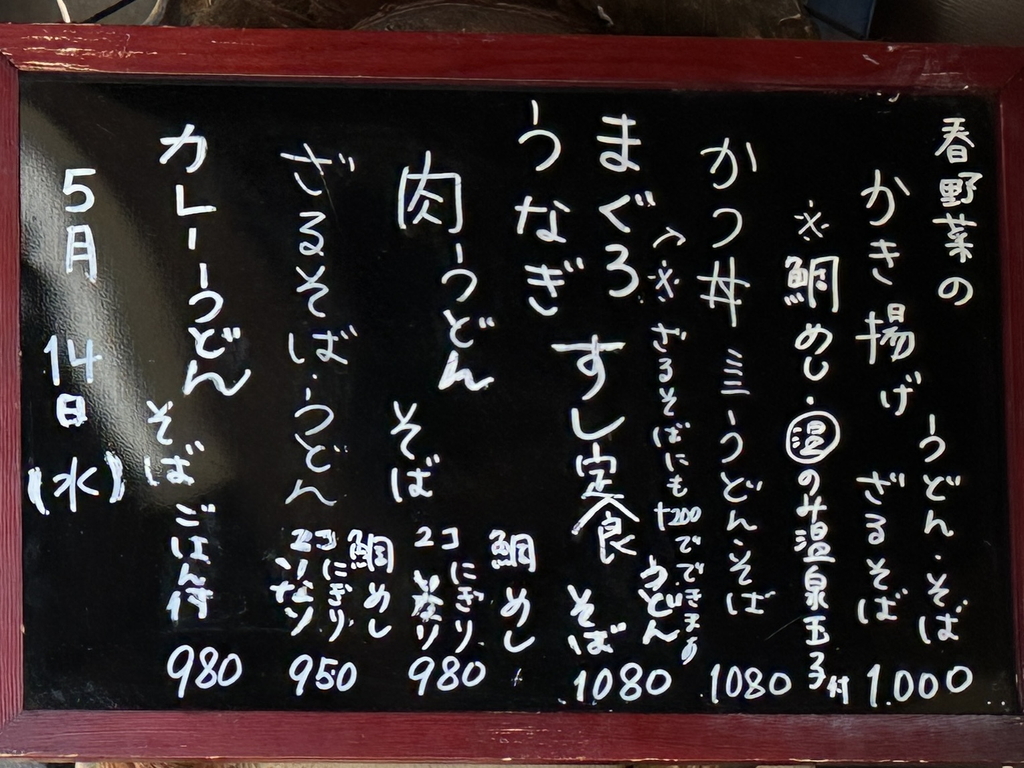 春野菜の
かき揚げ
うどん・そば
ざるそば
1.000
※鯛めし・温のみ温泉玉子付
かつ丼 ミニうどん・そば
1080
※ざるそばにも+200でできます
まぐろ
うなぎ
すし定食
うどん
そば
1080
肉うどん
そば
鯛めし
にぎり
2コ
980
ざるそば・うどん
鯛めし
にぎり
2コ
950
カレーうどん
そば
ごはん付
980
5月 14日 (水)